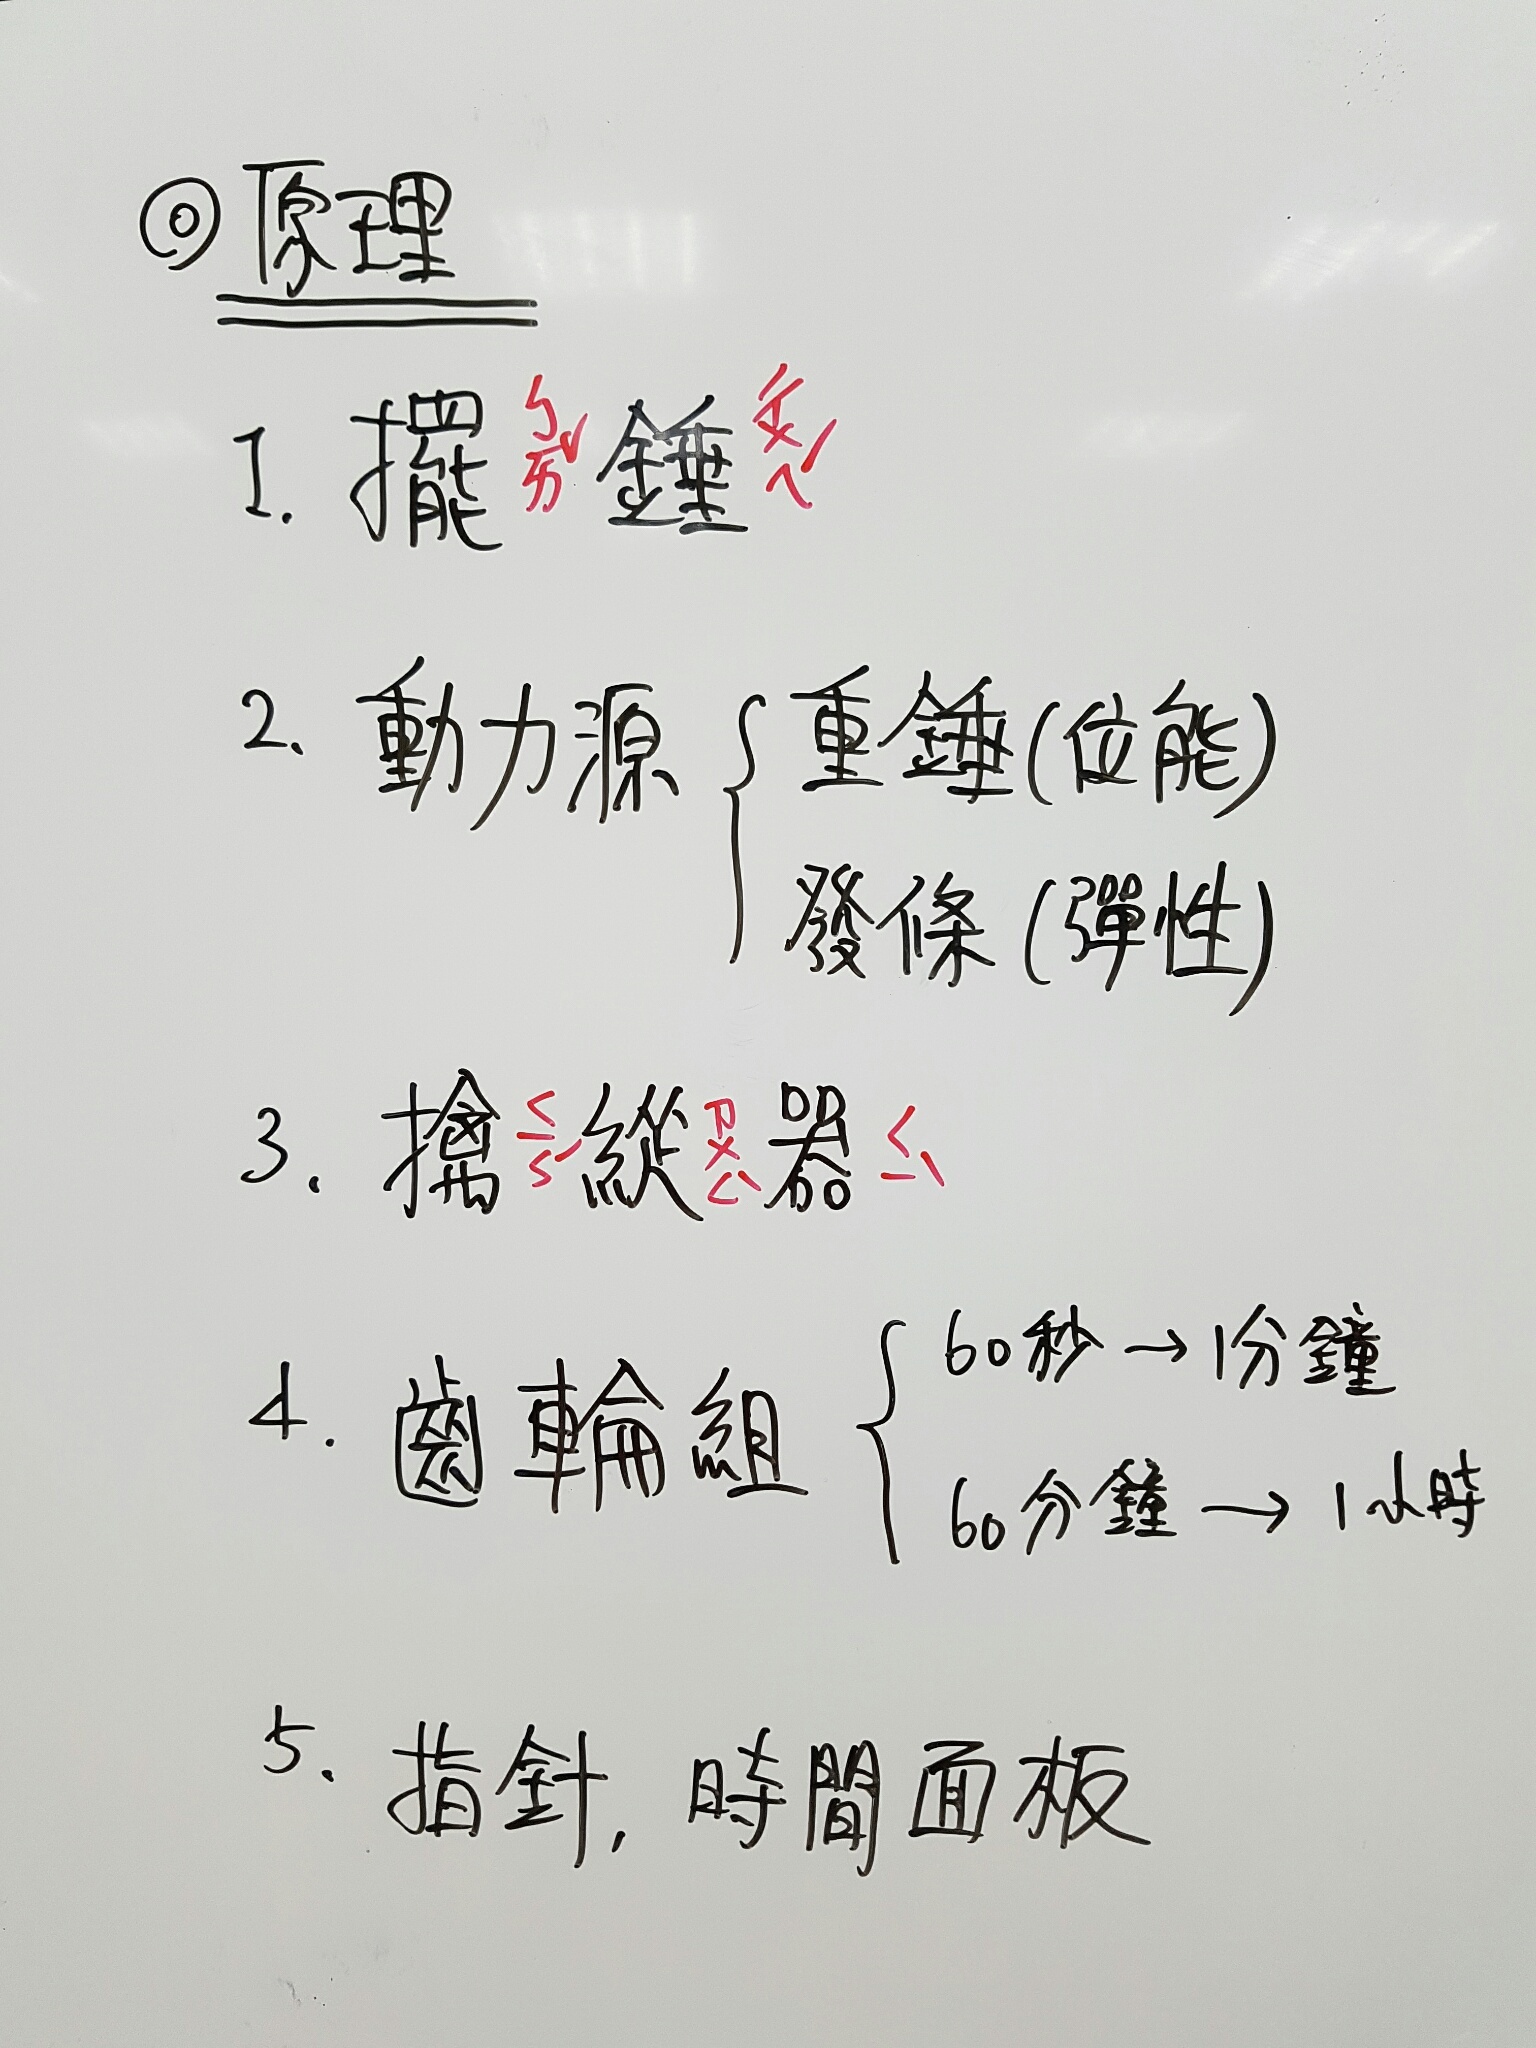 ◎原理
1. 擺ㄅㄞˇ錘ㄔㄨㄟˊ
2. 動力源{重錘(位能)
發條(彈性)
3. 擒ㄑㄧㄣˊ縱ㄗㄨㄥˋ器ㄑㄧˋ
4. 齒輪組{60秒→1分鐘
60分鐘→1小時
5. 指針, 時間面板